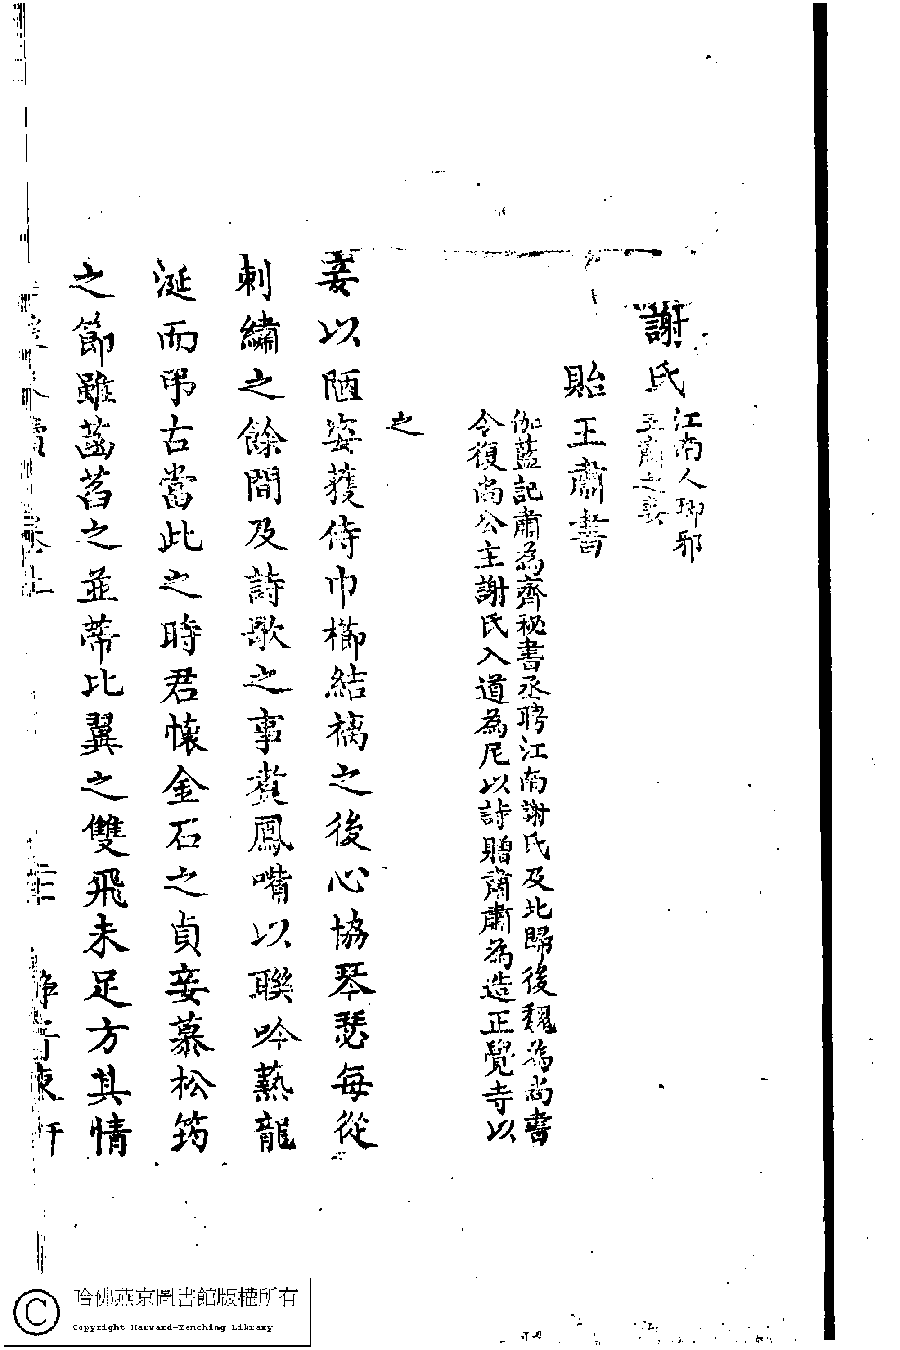 謝氏
江南人瑯邪
王肅之妻
貽王肅書
伽藍記肅為齊秘書丞聘江南謝氏及北歸後魏為尚書
令復尚公主謝氏入道為尼以詩贈肅肅為造正覺寺以
之
妾以陋姿獲侍巾櫛結褵之後心協琴瑟每從
刺繡之餘間及詩歌之事煑鳳嘴以聯吟爇龍
涎而弔古當此之時君懷金石之貞妾慕松筠
之節雖菡萏之並蒂比翼之雙飛未足方其情
哈佛燕京圖書館版權所有
Copyright Harvard-Yenching Library